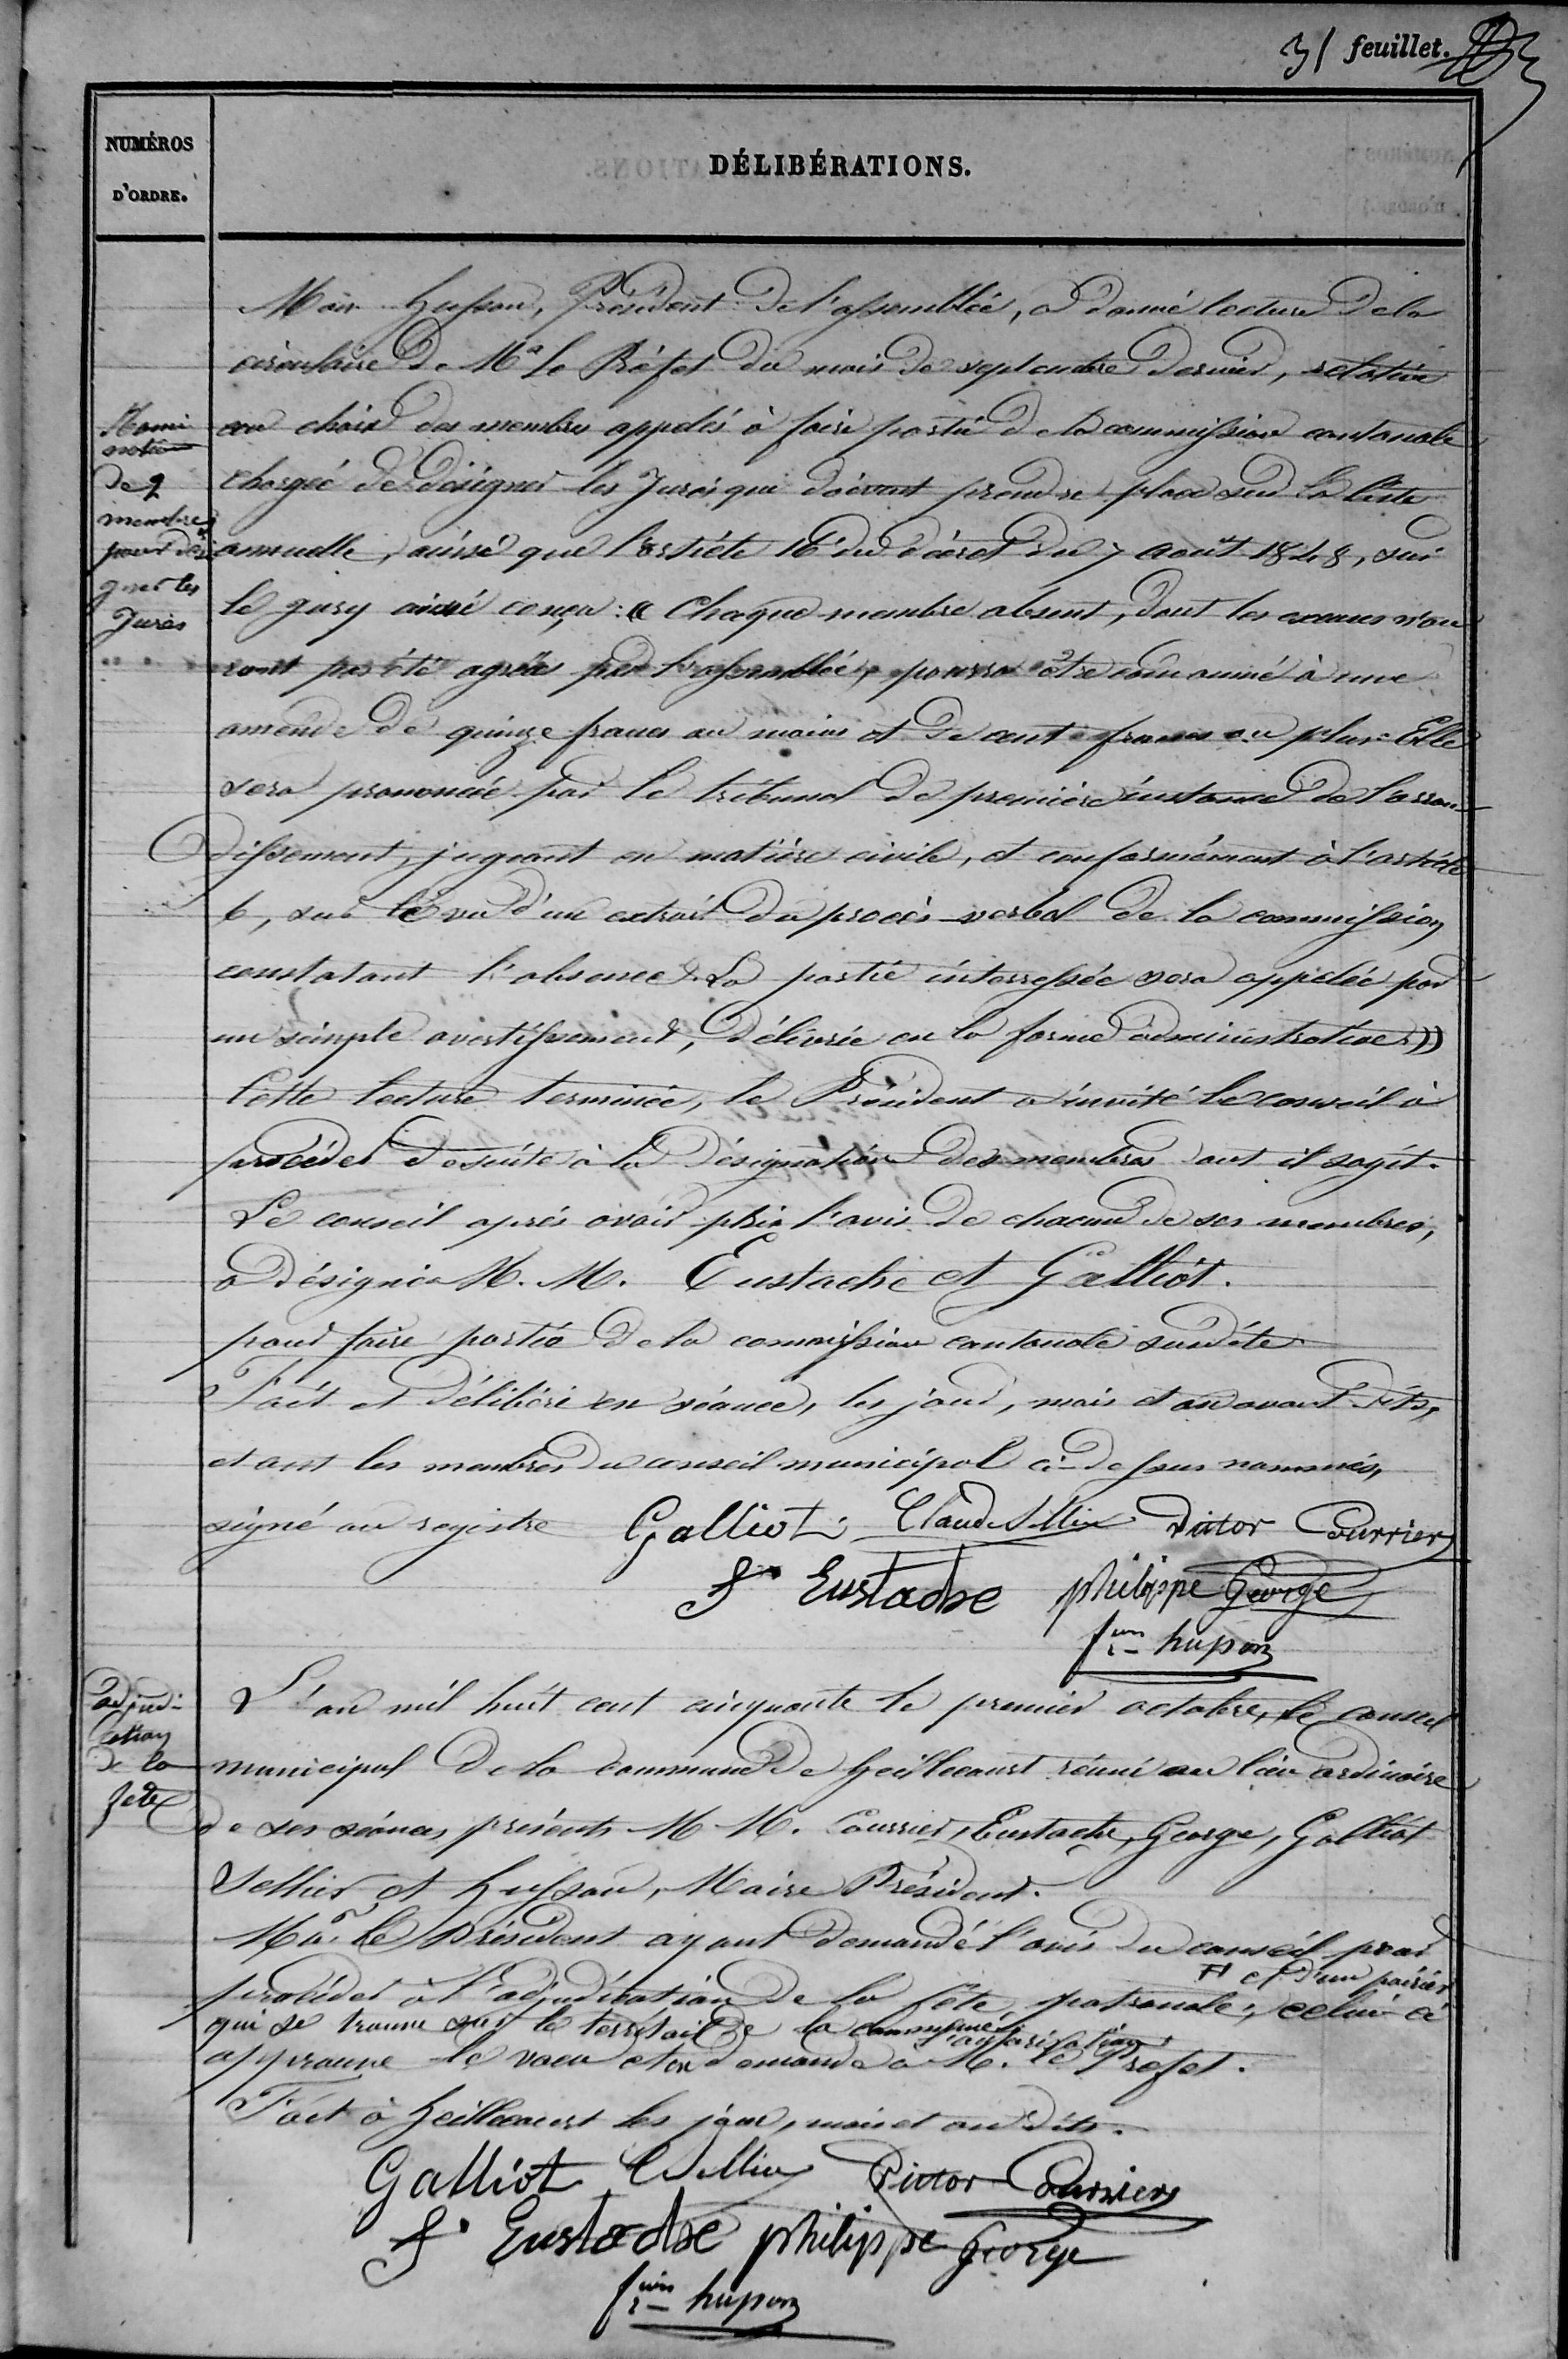 31 feuillet.
NUMÉROS
D'ORDRE.
DÉLIBÉRATIONS.
Nomi
nation
de 2
membres
pour dési
gner les
Jurés
Husson, Président de l'assemblée, a donné lecture de la
circulaire de Mr le Préfet du mois de septembre dernier, relative
au choix des membres appelés à faire partie de la commission cantonale
chargée de désigner les Jurés qui doivent prendre place sur la liste
annuelle, ainsi que l'article 16 du décret du 7 août 1848, sur
le jury ainsi conçu : « Chaque membre absent, dont les excuses n'au
ront pas été agréées par l'assemblée, pourra être condamné à une
amende de quinze francs au moins et de cent francs au plus. Elle
sera prononcée par le tribunal de première instance de l'arron-
dissement, jugeant en matière civile, et conformément à l'article
6, sur le vu d'un extrait du procès-verbal de la commission
constatant l'absence. La partie interressée sera appelée par
un simple avertissement, délivrée en la forme administrative »
Cette lecture terminée, le Président a invité le conseil à
procéder de suite à la désignation des membres dont il sagit.
Le conseil après avoir pris l'avis de chacun de ses membres,
a désigné M. M. Eustache et Galliot.
pour faire partie de la commission cantonale susdite.
Fait et délibéré en séance, les jour, mois et an avant dits,
et ont les membres du conseil municipal ci-dessus nommés,
signé au registre Galliot Claude Sellier Victor Courrier
Eustache philippe George
husson
adjudi-
cation
de la
fête
L'an mil huit cent cinquante le premier octobre, le conseil
municipal de la commune de heillecourt réuni au lieu ordinaire
de ses séances, présents M M. Courrier, Eustache, George, Galliot
Sellier et husson, Maire Président.
le Président ayant demandé l'avis du conseil pour
et d'un poirier
procéder à l'adjudication de la fête patronale, celui ci
qui se trouve sur le territoire de la commune
l'autorisation
approuve le vœu et en demande à M. le Préfet.
Fait à heillecourt les jour, mois et an dits.
Galliot Sellier Victor Courrier
Eustache philippe George
husson